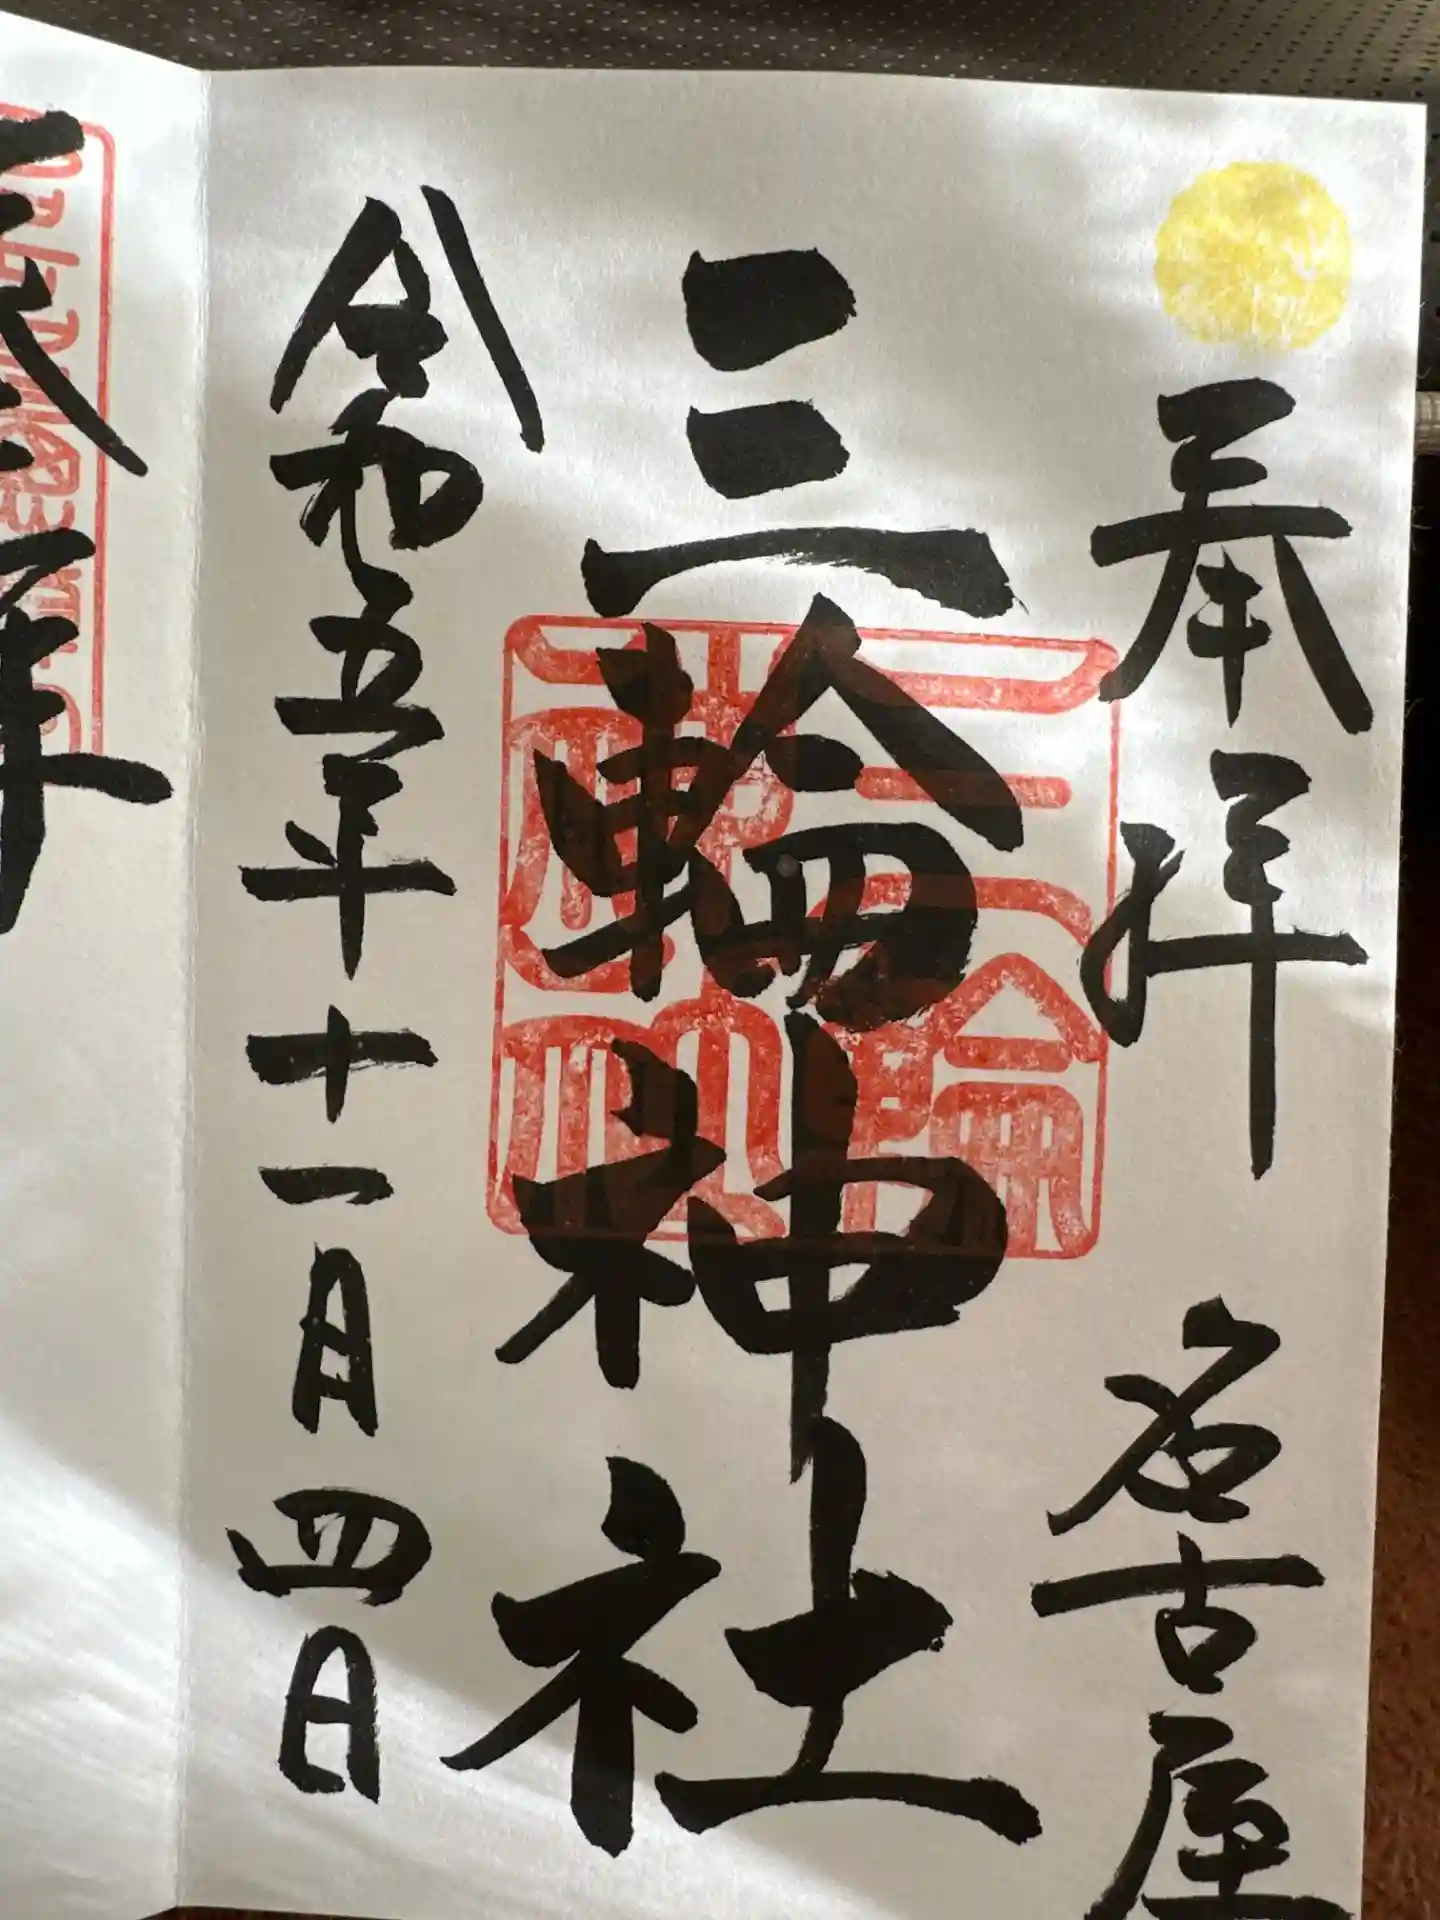 奉拝 名古屋
三輪神社
令和五年十一月四日
三輪神社
拝